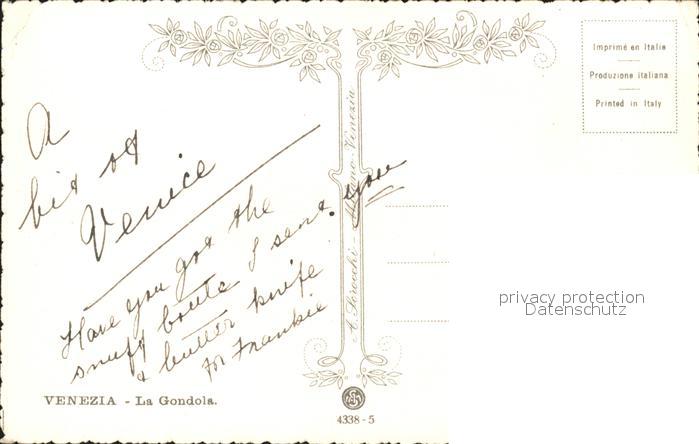 A
bit of
Venice
Have you got the
snuff I sent you
& butter knife
for Frankie
VENEZIA - La Gondola.
A. Scrocchi - Milano-Venezia
4338-5
Imprimé en Italie
Produzione italiana
Printed in Italy
privacy protection
Datenschutz